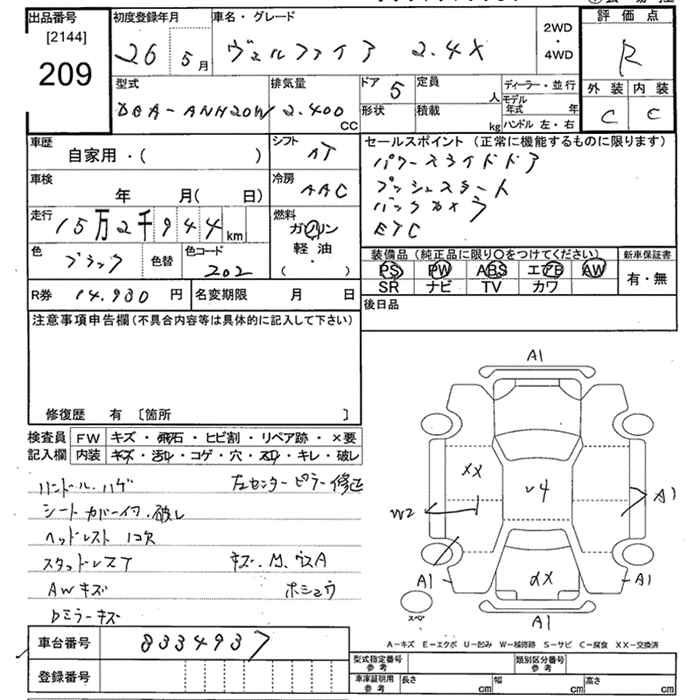 出品番号
[2144]
209
初度登録年月
26 5月
車名・グレード
ヴェルファイア 2.4X
2WD
・
4WD
評価点
R
外装 内装
C C
型式
DBA-ANH20W
排気量
2.400
CC
ドア 5
形状
定員
人
積載
kg
ディーラー・並行
モデル年式 年
ハンドル 左・右
車歴
自家用・( )
シフト
AT
車検
年 月( 日)
冷房
AAC
走行
15万2千944km
燃料
ガソリン
軽油
・
( )
色
ブラック
色替
色コード
202
R券 14.930 円
名変期限 月 日
セールスポイント (正常に機能するものに限ります)
パワースライドドア
プッシュスタート
バックカメラ
ETC
装備品 (純正品に限り○をつけてください)
新車保証書
PS PW ABS エアB AW
SR ナビ TV カワ
有・無
後日品
注意事項申告欄(不具合内容等は具体的に記入して下さい)
修復歴 有 [箇所 ]
検査員記入欄
FW キズ・飛石・ヒビ割・リペア跡・×要
内装 キズ・汚れ・コゲ・穴・スレ・キレ・破レ
ハンドル.ハゲ 左センターピラー修正
シートカバーイタ.破レ
ヘッドレスト 1コ欠
スタッドレスT キズ.M.ウスA
AWキズ ホシュウ
Dミラーキズ
車台番号 8334937
登録番号
A1
XX
V4
W2
A1
A1
XX
A1
A1
スペア
A-キズ E-エクボ U-凹み W-補修跡 S-サビ C-腐食 XX-交換済
型式指定番号
参考
類別区分番号
参考
車庫証明用
参考
長さ cm 幅 cm 高さ cm